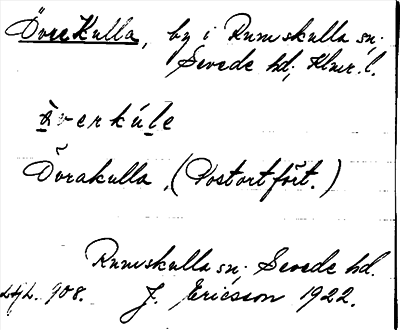 Överkulla, by i Rumskulla sn;
Sevede hd, Klmr. l.
ä̀verkúle
Övrakulla, (Postortfört.)
Rumskulla sn; Sevede hd.
Lijl. 908. J. Ericsson 1922.